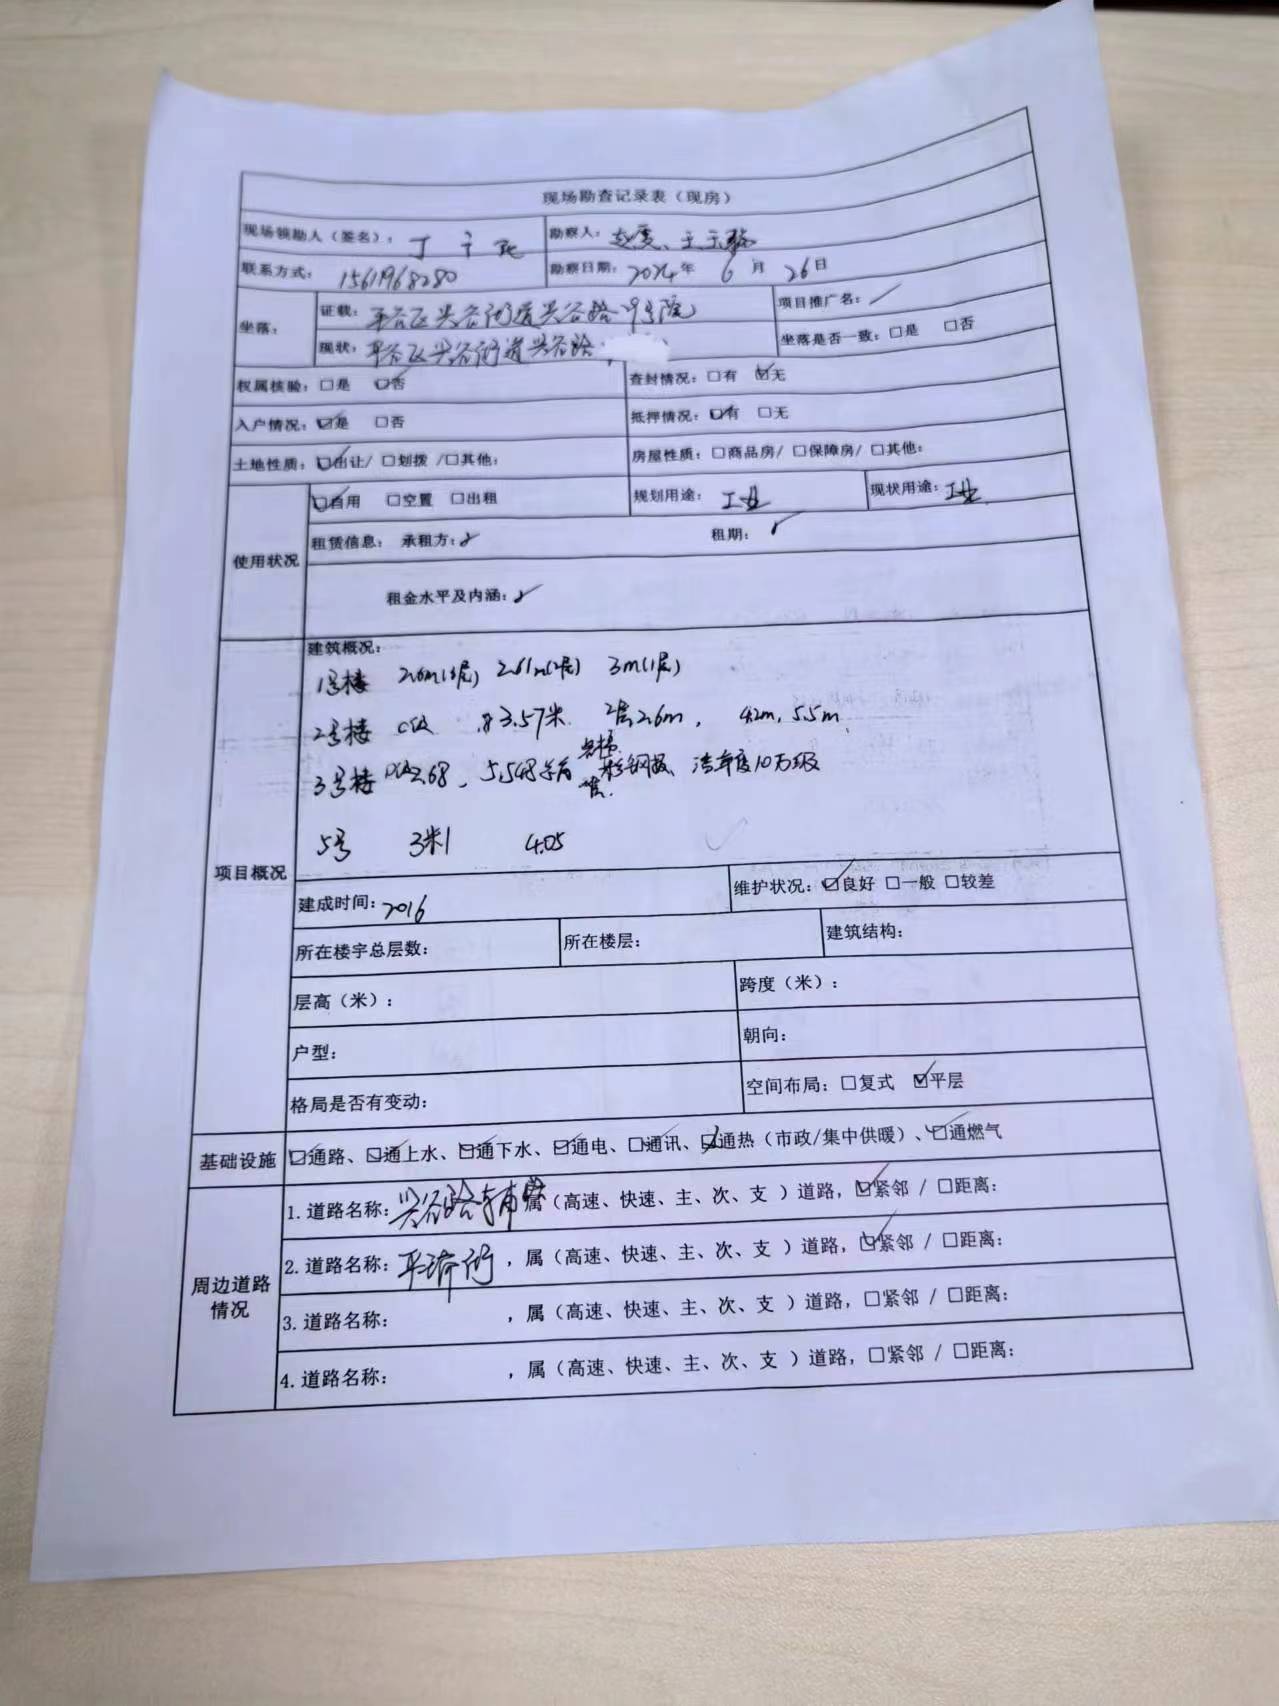 现场勘查记录表（现房）
现场领勘人（签名）： 丁 勘察人：
联系方式： 勘察日期：2024年 6月 26日
坐落： 证载：平谷区兴谷街道兴谷路 号院 项目推广名：
现状：平谷区兴谷街道兴谷路 坐落是否一致：□是 □否
权属核验：□是 ☑否 查封情况：□有 ☑无
入户情况：☑是 □否 抵押情况：☑有 □无
土地性质：☑出让/ □划拨 /□其他： 房屋性质：□商品房/ □保障房/ □其他：
使用状况 ☑自用 □空置 □出租 规划用途：工业 现状用途：工业
租赁信息： 承租方： 租期：
租金水平及内涵：
项目概况 建筑概况：
1号楼 2.61m(2层) 3m(1层)
2号楼 3.57米 2层2.6m， 4.2m，5.5m
3号楼 彩钢板、洁净度10万级
5号 3米1 4.05
建成时间：2016 维护状况：☑良好 □一般 □较差
所在楼宇总层数： 所在楼层： 建筑结构：
层高（米）： 跨度（米）：
户型： 朝向：
格局是否有变动： 空间布局：□复式 ☑平层
基础设施 ☑通路、☑通上水、☑通下水、☑通电、☑通讯、☑通热（市政/集中供暖）、☑通燃气
周边道路情况 1.道路名称：兴谷路辅路 属（高速、快速、主、次、支 ）道路，☑紧邻 / □距离：
2.道路名称：平 街 ，属（高速、快速、主、次、支 ）道路，☑紧邻 / □距离：
3.道路名称： ，属（高速、快速、主、次、支 ）道路，□紧邻 / □距离：
4.道路名称： ，属（高速、快速、主、次、支 ）道路，□紧邻 / □距离：